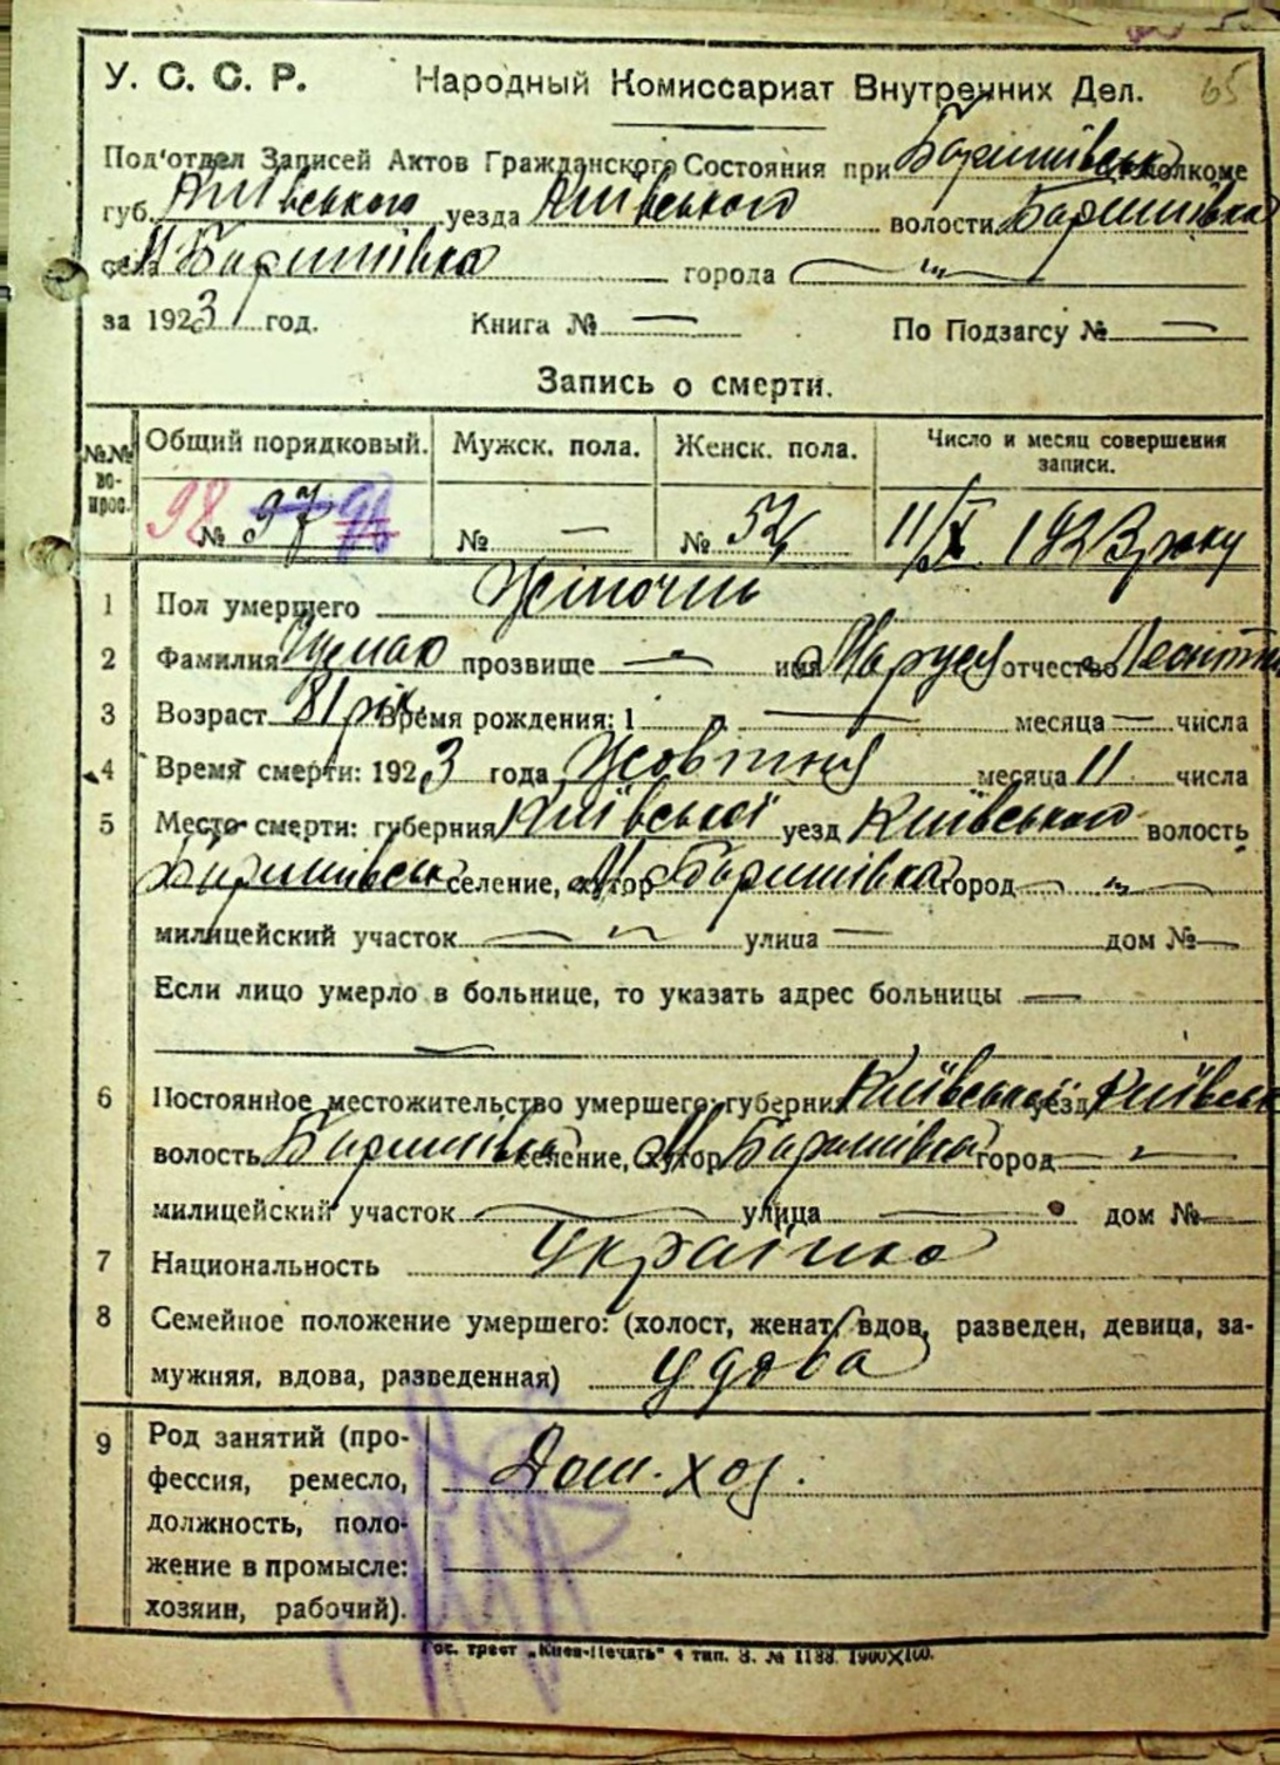 65
У. С. С. Р. Народный Комиссариат Внутренних Дел.
Под'отдел Записей Актов Гражданского Состояния при Баришівськ исполкоме
губ. Київського уезда Київського волости Баришівка
села М Баришівка города
за 1923 год. Книга № — По Подзагсу № —
Запись о смерти.
№№ вопрос. Общий порядковый. Мужск. пола. Женск. пола. Число и месяц совершения записи.
98 № 97 № — № 52 11/X 1923 року
1 Пол умершего Жіночий
2 Фамилия прозвище — имя Маруся отчество
3 Возраст 81 рік Время рождения: 1 — месяца — числа
4 Время смерти: 1923 года Жовтня месяца 11 числа
5 Место смерти: губерния Київської уезд Київського волость
Баришівськ селение, хутор М Баришівка город —
милицейский участок — улица — дом № —
Если лицо умерло в больнице, то указать адрес больницы —
6 Постоянное местожительство умершего: губерния Київської уезд Київськ
волость Баришівка селение, хутор М Баришівка город —
милицейский участок — улица — дом № —
7 Национальность Українка
8 Семейное положение умершего: (холост, женат, вдов, разведен, девица, за-
мужняя, вдова, разведенная) Удова
9 Род занятий (про-
фессия, ремесло,
должность, поло-
жение в промысле:
хозяин, рабочий).
Дом. хоз.
Гос. трест „Киев-Печать" 4 тип. З. № 1188. 1900X100.